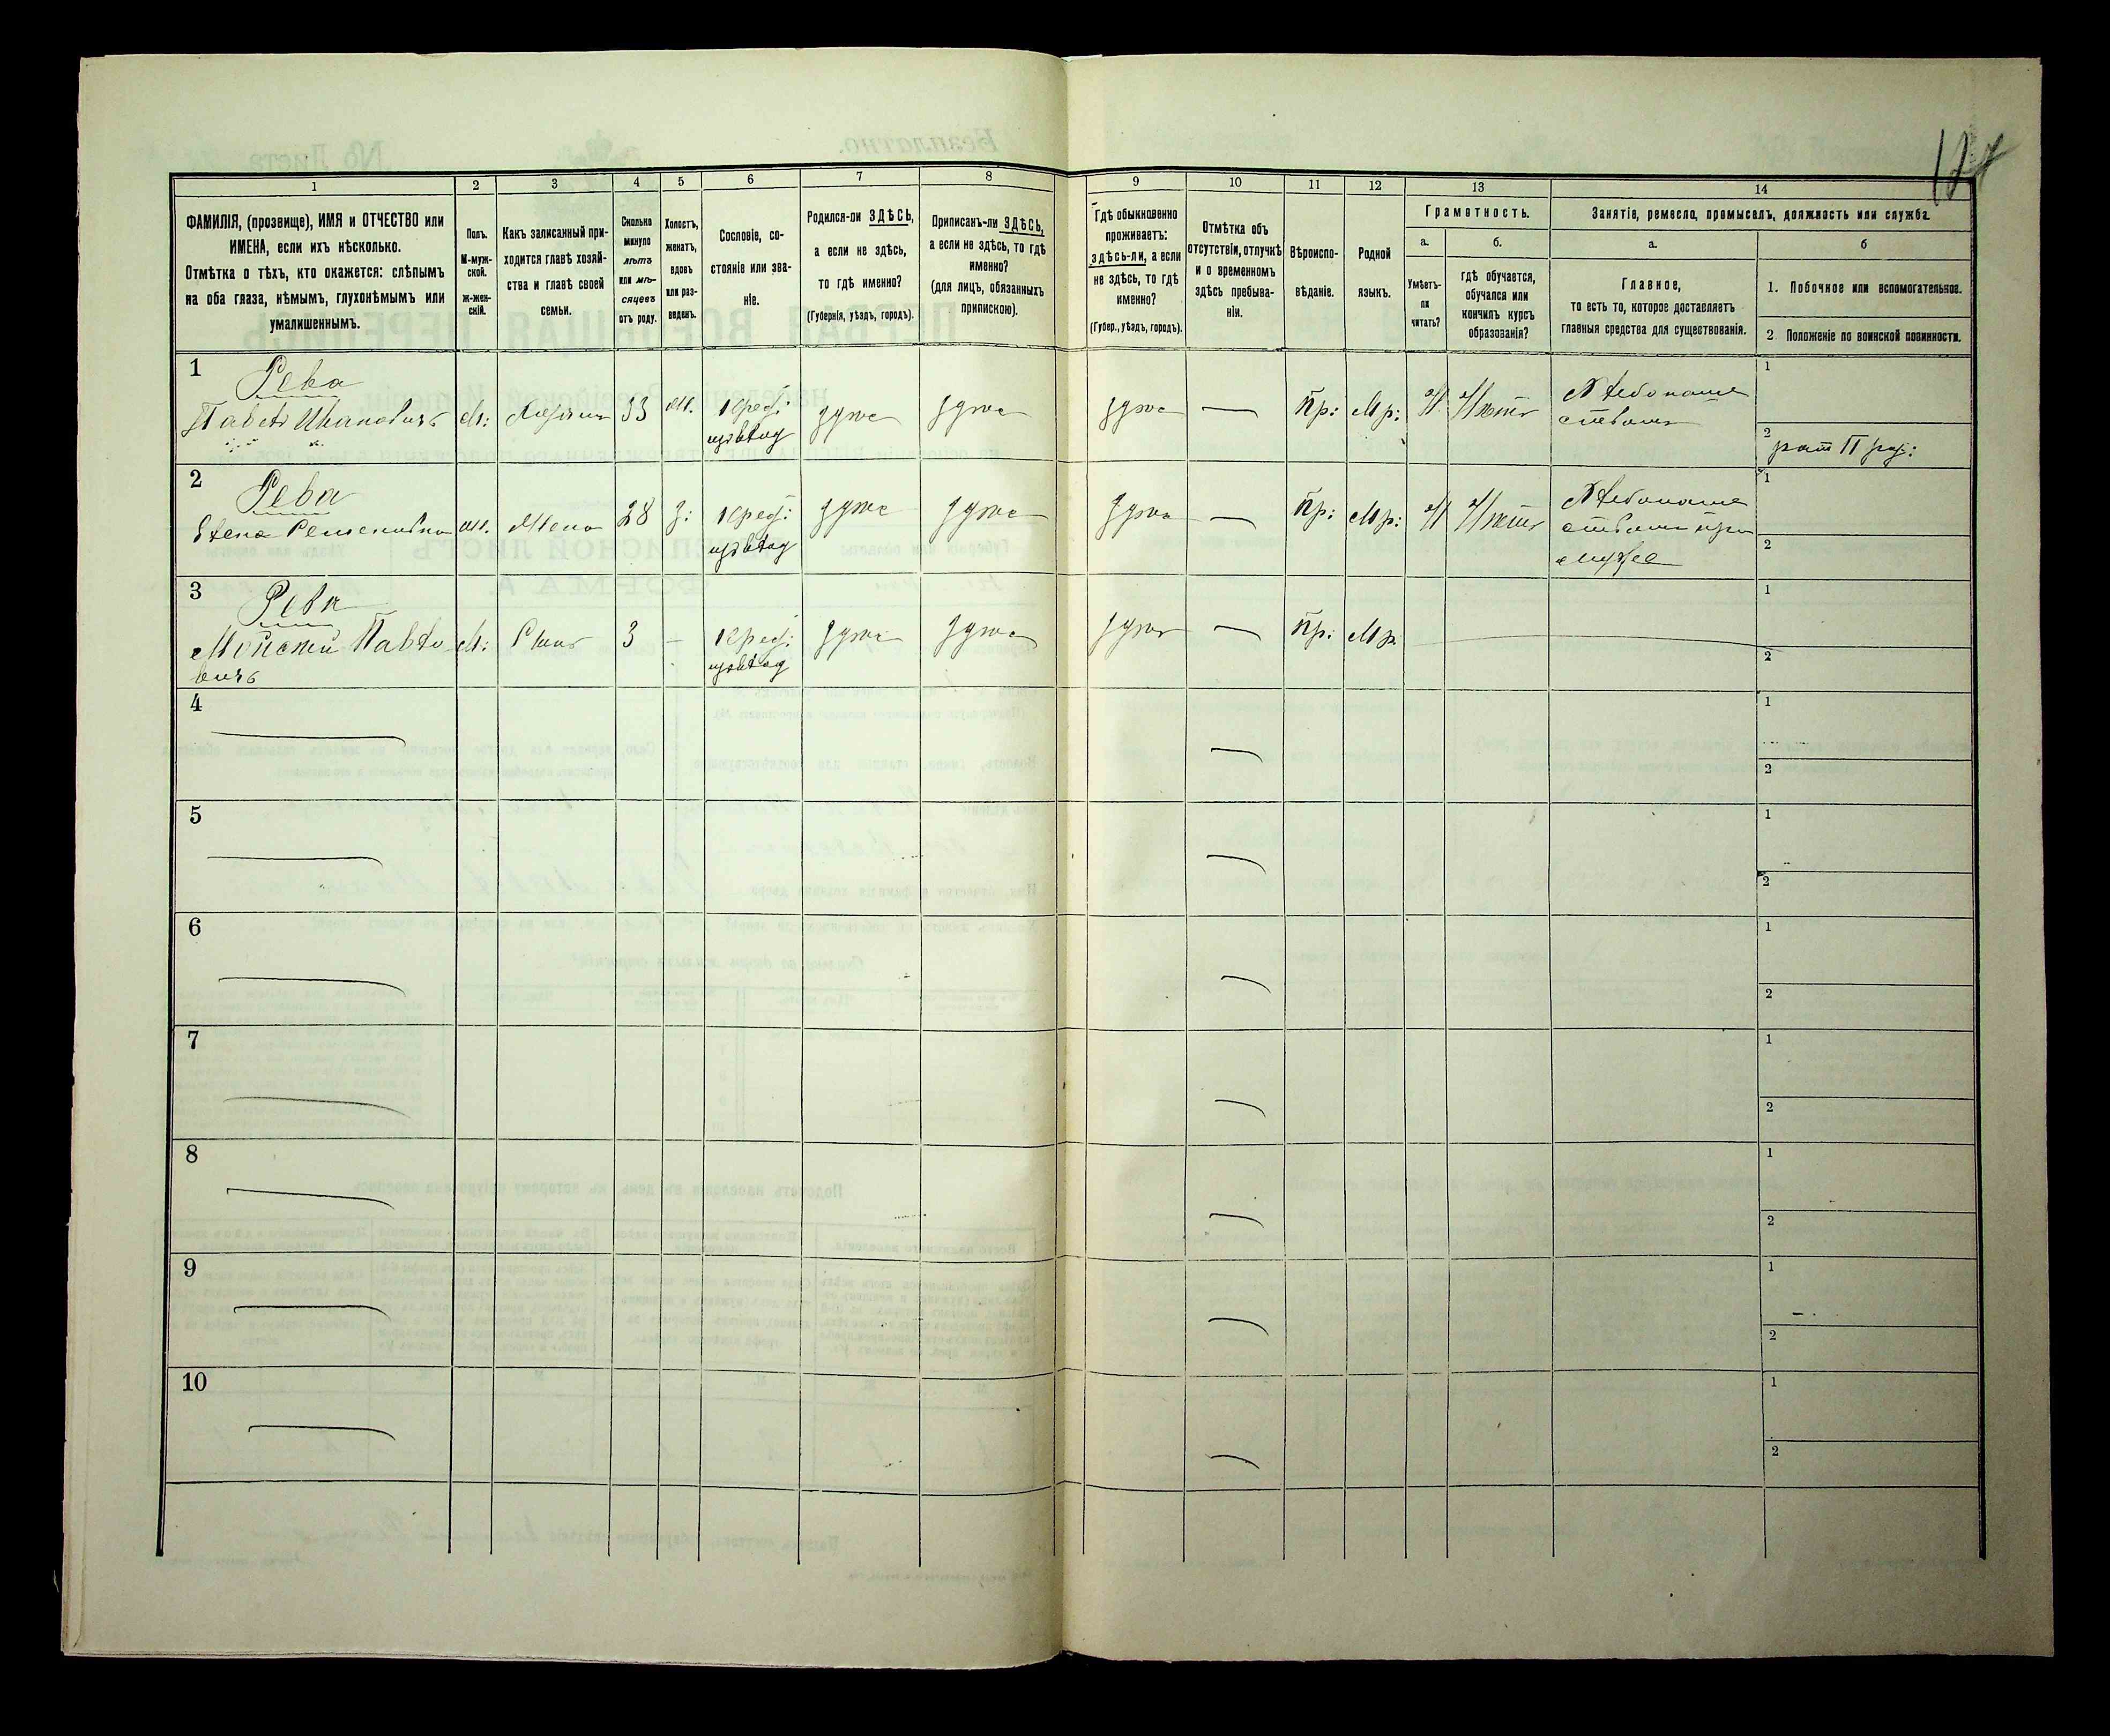 124
1
2
3
4
5
6
7
8
9
10
11
12
13
14
ФАМИЛІЯ, (прозвище), ИМЯ и ОТЧЕСТВО или
ИМЕНА, если ихъ нѣсколько.
Отмѣтка о тѣхъ, кто окажется: слѣпымъ
на оба глаза, нѣмымъ, глухонѣмымъ или
умалишеннымъ.
Полъ.
М-муж-
ской.
ж-жен-
скій.
Какъ записанный при-
ходится главѣ хозяй-
ства и главѣ своей
семьи.
Сколько
минуло
лѣтъ
или мѣ-
сяцевъ
отъ роду.
Холостъ,
женатъ,
вдовъ
или раз-
веденъ.
Сословіе, со-
стояніе или зва-
ніе.
Родился-ли ЗДѢСЬ,
а если не здѣсь,
то гдѣ именно?
(Губернія, уѣздъ, городъ).
Приписанъ-ли ЗДѢСЬ,
а если не здѣсь, то гдѣ
именно?
(для лицъ, обязанныхъ
припискою).
Гдѣ обыкновенно
проживаетъ:
здѣсь-ли, а если
не здѣсь, то гдѣ
именно?
(Губер., уѣздъ, городъ).
Отмѣтка объ
отсутствіи, отлучкѣ
и о временномъ
здѣсь пребыва-
ніи.
Вѣроиспо-
вѣданіе.
Родной
языкъ.
Грамотность.
а.
б.
Умѣетъ-
ли
читать?
гдѣ обучается,
обучался или
кончилъ курсъ
образованія?
Занятіе, ремесло, промыселъ, должность или служба.
а.
б
Главное,
то есть то, которое доставляетъ
главныя средства для существованія.
1. Побочное или вспомогательное.
2. Положеніе по воинской повинности.
1
Рева
Павелъ Ивановичъ
М:
Хозяинъ
33
Ж.
Крес:
здѣсь
здѣсь
здѣсь
—
Пр:
Мр:
Н
Нѣтъ
Хлебопаше
ствомъ
1
2
рат II раз:
2
Рева
Елена Семеновна
Ж.
Жена
28
З:
Крес:
здѣсь
здѣсь
здѣсь
—
Пр:
Мр:
Н
Нѣтъ
Хлебопаше
ствомъ при
мужѣ
1
2
3
Рева
Моисей Павло
вичъ
М:
Сынъ
3
—
Крес:
здѣсь
здѣсь
здѣсь
—
Пр:
Мр.
1
2
4
1
2
5
1
2
6
1
2
7
1
2
8
1
2
9
1
2
10
1
2